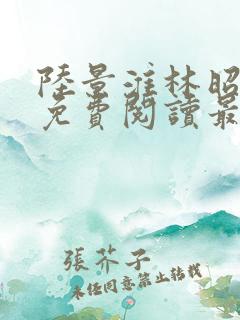 陸景淮林昭
免費閱讀最
張芥子
未經同意禁止轉載